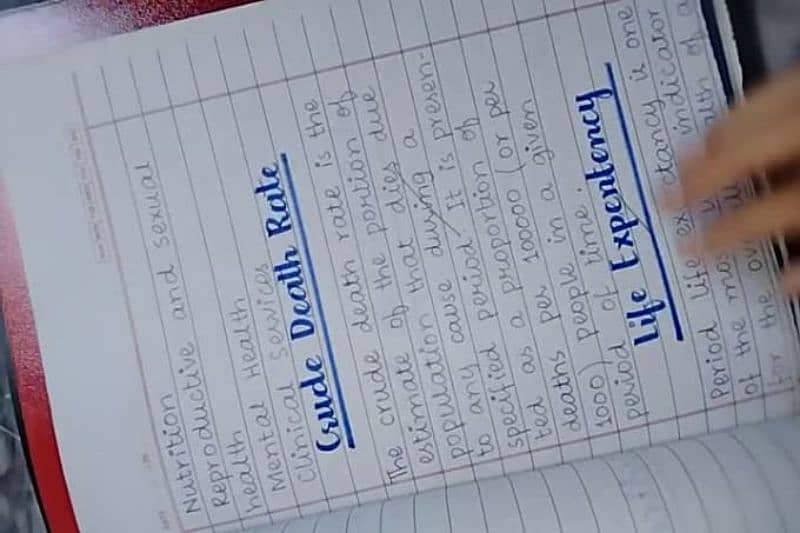 Nutrition
Reproductive and sexual
health
Mental Health
Clinical Services
Crude Death Rate
The crude death rate is the
estimate of the portion of
population that dies due
to any cause during a
specified period. It is presen-
ted as a proportion of
deaths per 100000 (or per
1000) people in a given
period of time.
Life Expentency
Period life ex tancy is one
of the mos indicator
for the ov alth of a